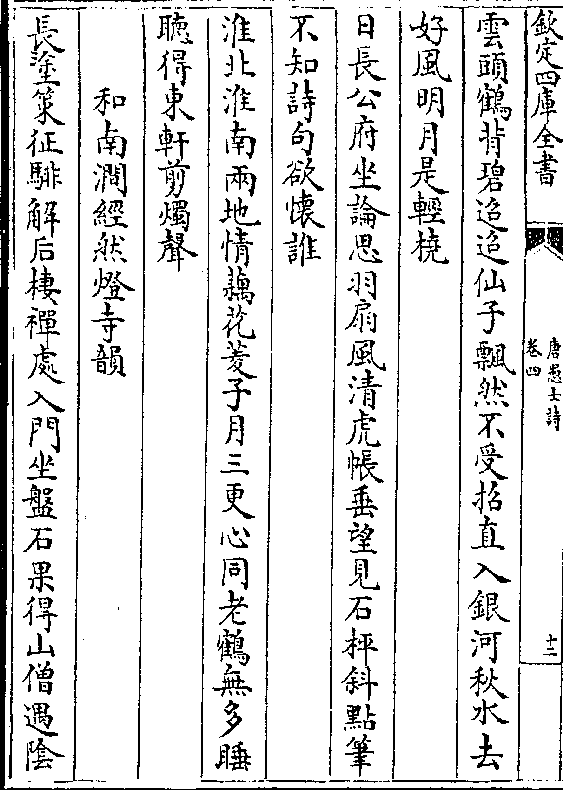 欽定四庫全書
唐愚士詩
卷四
十二
雲頭鶴背碧迢迢仙子飄然不受招直入銀河秋水去
好風明月是輕橈
日長公府坐論思羽扇風清虎帳垂望見石枰斜點筆
不知詩句欲懷誰
淮北淮南兩地情藕花菱子月三更心同老鶴無多睡
聽得東軒剪燭聲
和南澗經然燈寺韻
長塗策征騑解后棲禪處入門坐盤石果得山僧遇陰